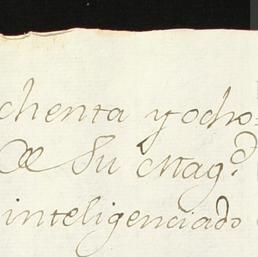 chenta y ocho=
de Su Mag.d
inteligenciado